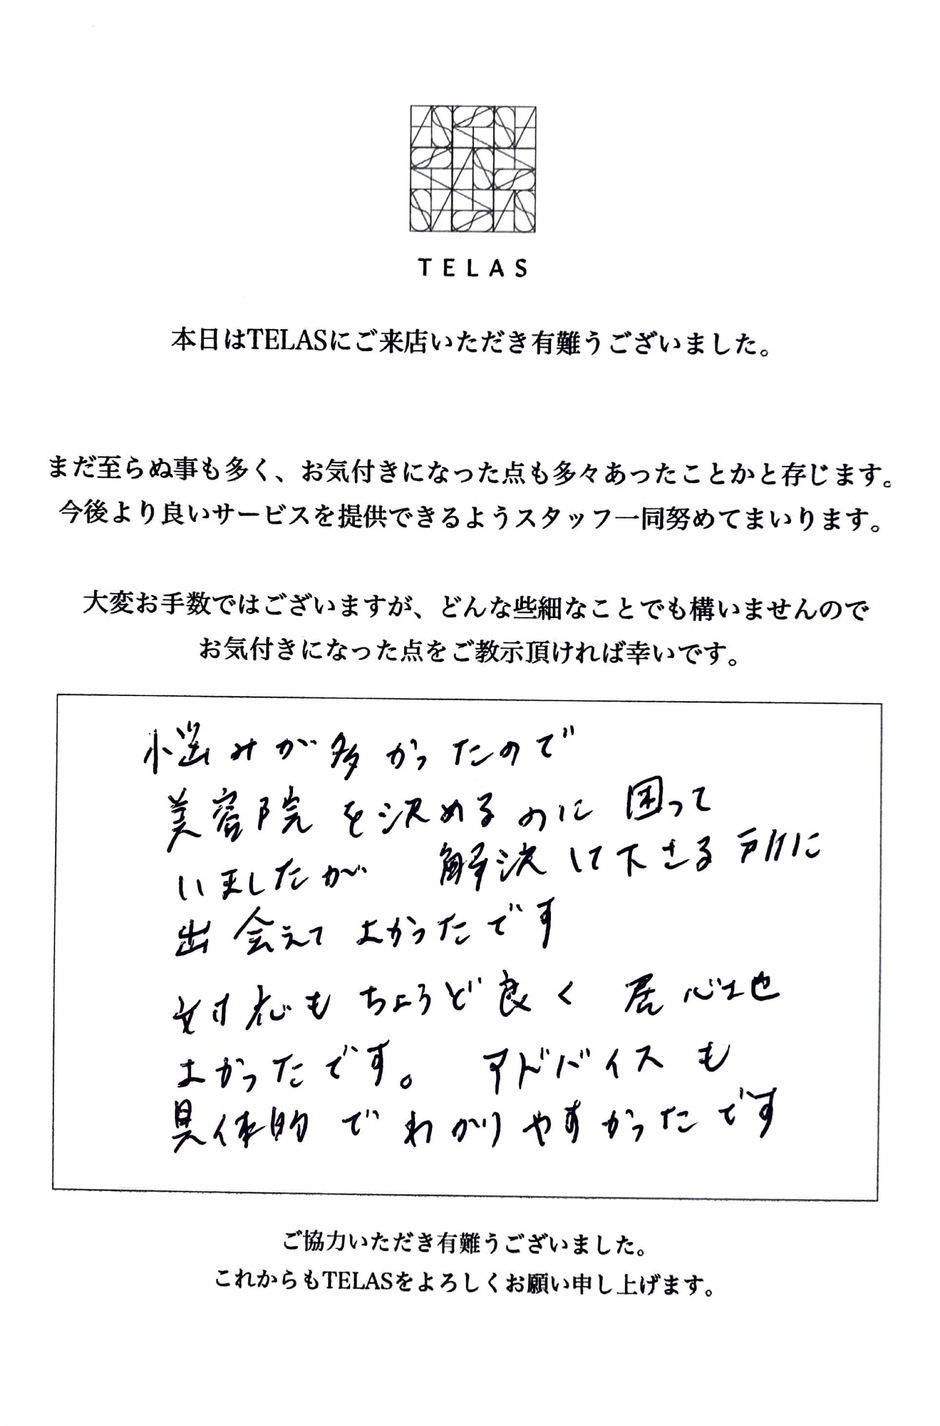 TELAS
本日はTELASにご来店いただき有難うございました。
まだ至らぬ事も多く、お気付きになった点も多々あったことかと存じます。
今後より良いサービスを提供できるようスタッフ一同努めてまいります。
大変お手数ではございますが、どんな些細なことでも構いませんので
お気付きになった点をご教示頂ければ幸いです。
悩みが多かったので
美容院を決めるのに困って
いましたが 解決して下さる所に
出会えてよかったです
対応もちょうど良く 居心地
よかったです。 アドバイスも
具体的でわかりやすかったです
ご協力いただき有難うございました。
これからもTELASをよろしくお願い申し上げます。